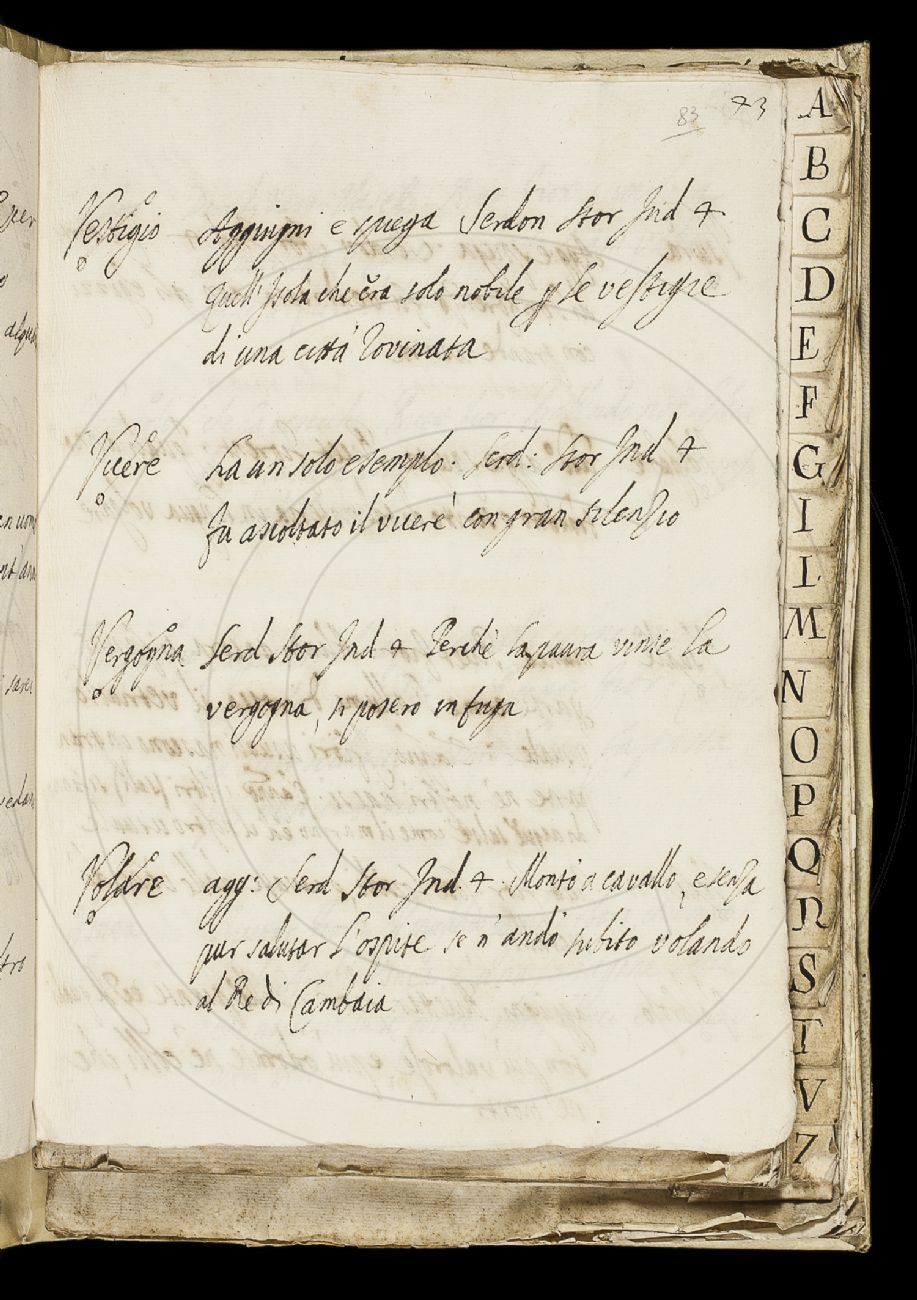 83 73
Vestigio Aggiugni e spiega Serdon Stor Ind 4.
Quell' Isola che era solo nobile p le vestigie
di una città rovinata
Vicere ha un solo esempio. Serd: Stor Ind 4
fu ascoltato il vicerè con gran silenzio
Vergogna Serd Stor Ind 4 Perchè la paura vinse la
vergogna, si posero in fuga
Volare agg: Serd Stor Ind. 4. Montò a cavallo, e senza
pur salutar l'ospite se n'andò subito volando
al Re di Cambaia
A
B
C
D
E
F
G
I
L
M
N
O
P
Q
R
S
T
V
Z